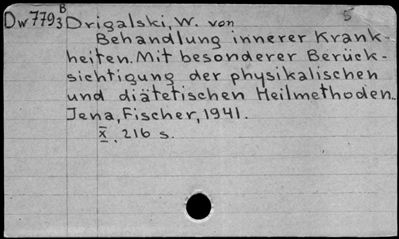 Dw 7793 B Drigalski, W. von 5
Behandlung innerer Krank-
heiten. Mit besonderer Berück-
sichtigung der physikalischen
und diätetischen Heilmethoden..
Jena, Fischer, 1941.
X, 216 s.